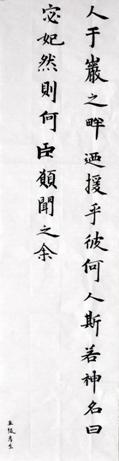 人于巖之畔迺援乎彼何人斯若神名曰
宓妃然則何臣願聞之余
五级考生